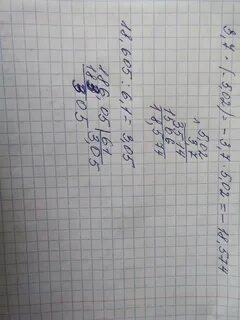 3,7 · (-5,02) = -3,7 · 5,02 = -18,574
× 5,02
3,7
3514
1506
18,574
18,605 : 6,1 = 3,05
186,05 | 61
183 | 3,05
305